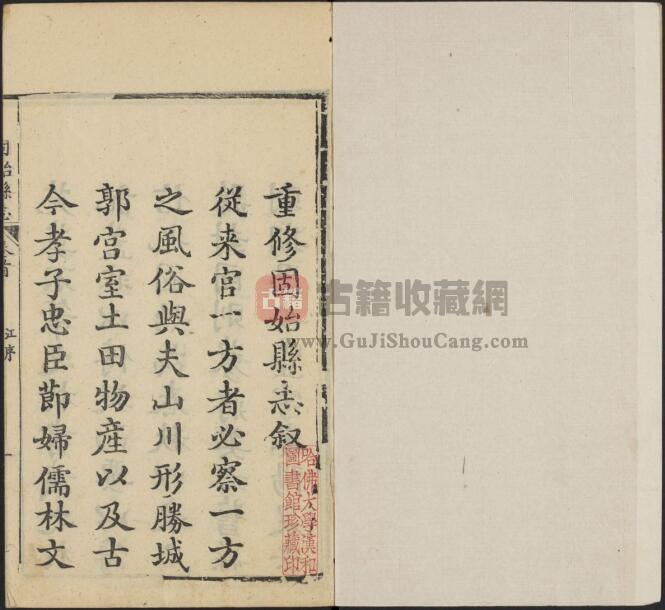 重修固始縣志叙
從来官一方者必察一方
之風俗與夫山川形勝城
郭宫室土田物産以及古
今孝子忠臣節婦儒林文
固始縣志
卷首
江序
一
哈佛大學漢和
圖書館珍藏印
古籍
古籍收藏网
www.GuJiShouCang.com